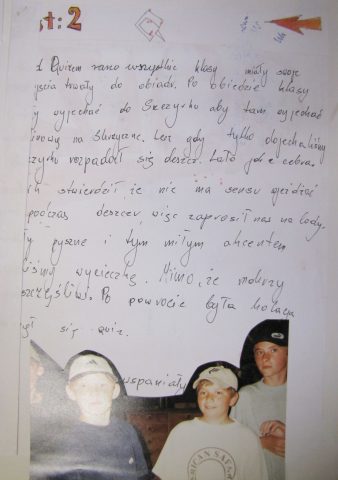 st: 2
1 Quizem rano wszystkie klasy miały swoje
trwały do obiadu. Po obiedzie klasy
wyjechać do Szczyrku aby tam wyjechać
na Skrzyczne. Lecz gdy tylko dojechaliśmy
rozpadał się deszcz. Lało jak z cebra.
stwierdził, że nie ma sensu wjeżdżać
podczas deszczu więc zaprosił nas na lody.
pyszne i tym miłym akcentem
wycieczkę. Mimo, że mokrzy
szczęśliwi. Po powrocie była kolacja
się quiz.
wspaniały